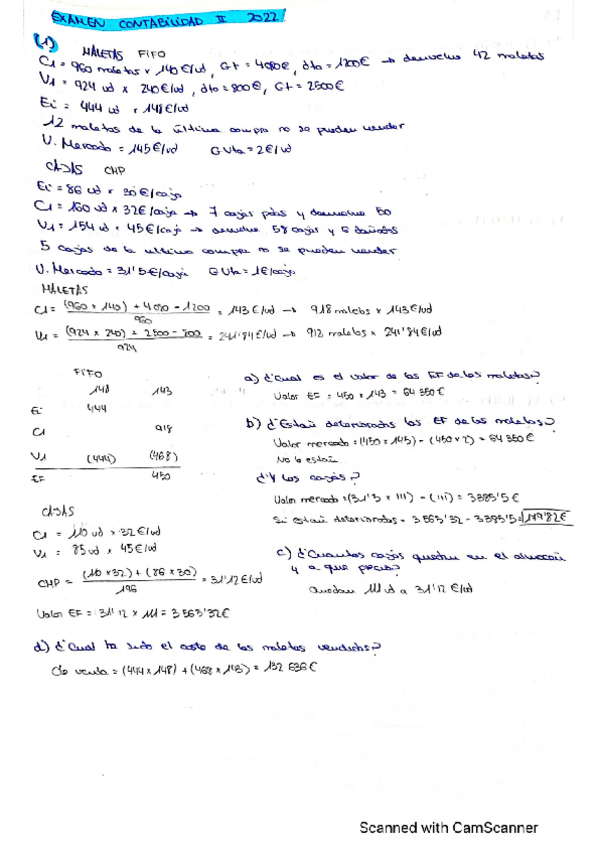 EXAMEN CONTABILIDAD II 2022
(1)
MALETAS FIFO
C1 = 960 maletas x 140€/ud, Gt = 4080€, dto = 1200€ → devuelve 42 maletas
V1 = 924 ud x 240€/ud, dto = 800€, Gt = 2500€
Ei = 444 ud x 148€/ud
12 maletas de la última compra no se pueden vender
V. Mercado = 145€/ud G Vta = 2€/ud
CAJAS CMP
Ei = 86 ud x 30€/caja
C1 = 160 ud x 32€/caja → 7 cajas y devuelve 50
V1 = 154 ud x 45€/caj → devuelve 58 cajas y 6 dañadas
5 cajas de la ultima compra no se pueden vender
V. Mercado = 31'5€/caja G Vta = 1€/caja
MALETAS
C1 = (960 x 140) + 4080 - 1200 / 960 = 143€/ud → 918 maletas x 143€/ud
V1 = (924 x 240) + 2500 - 800 / 924 = 241'84€/ud → 912 maletas x 241'84€/ud
FIFO
148 143
Ei 444
C1 918
V1 (444) (468)
EF 450
a) ¿Cual es el valor de las EF de las maletas?
Valor EF = 450 x 143 = 64 350€
b) ¿Están deterioradas las EF de las maletas?
Valor mercado = (450 x 145) - (450 x 2) = 64 350€
No lo están
¿Y las cajas?
Valor mercado = (31'5 x 111) - (111) = 3385'5€
Si están deterioradas = 3563'32 - 3385'5 = 179'82€
CAJAS
C1 = 110 ud x 32€/ud
V1 = 85 ud x 45€/ud
CMP = (110 x 32) + (86 x 30) / 196 = 31'12€/ud
Valor EF = 31'12 x 111 = 3563'32€
c) ¿Cuantas cajas quedan en el almacén y a que precio?
Quedan 111 ud a 31'12€/ud
d) ¿Cual ha sido el coste de las maletas vendidas?
Cto venta = (444 x 148) + (468 x 143) = 132 636€
Scanned with CamScanner